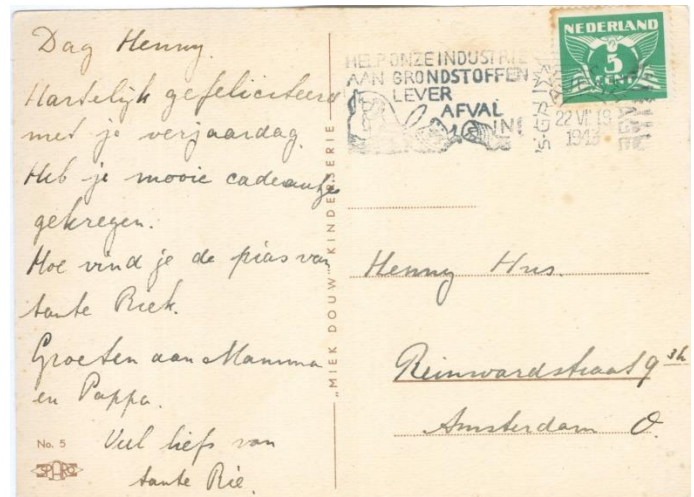 Dag Henny.
Hartelijk gefeliciteerd
met je verjaardag.
Heb je mooie cadeautjes
gekregen.
Hoe vind je de pias van
tante Riek.
Groeten aan Mamma
en Pappa.
Veel liefs van
tante Rie.
No. 5
SPARO
"MIEK DOUW" KINDERSERIE
HELP ONZE INDUSTRIE
AAN GRONDSTOFFEN
LEVER
AFVAL
IN!
'S-GRAVENHAGE
22 VI 19
1943
NEDERLAND
5
CENT
Henny Hus.
Reinwardstraat 9 sh
Amsterdam O.